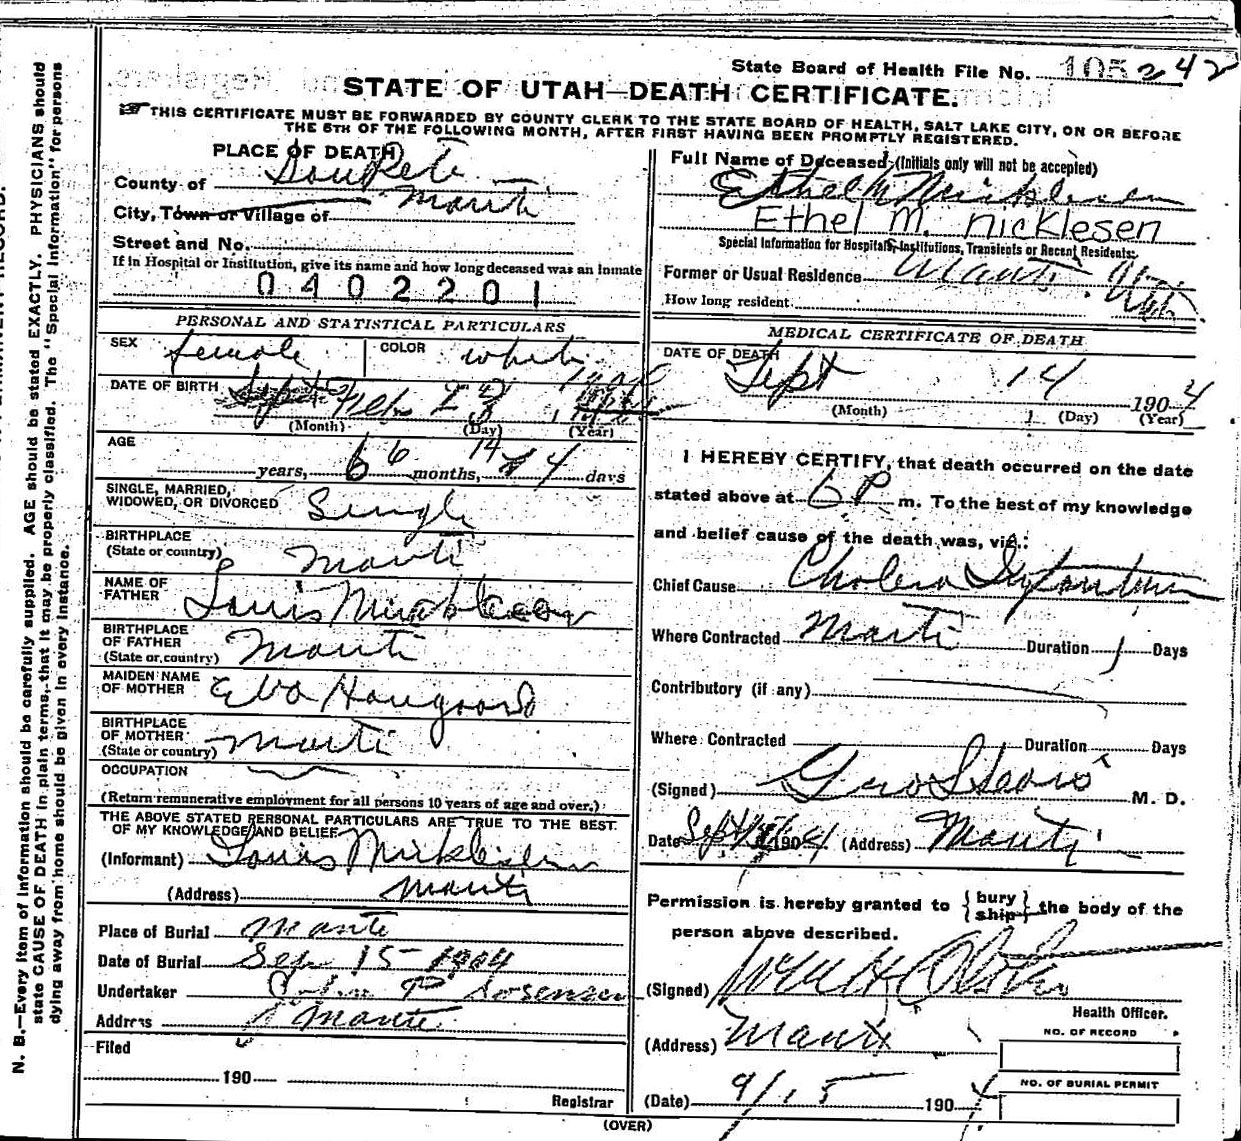 State Board of Health File No. 105 242
STATE OF UTAH—DEATH CERTIFICATE.
THIS CERTIFICATE MUST BE FORWARDED BY COUNTY CLERK TO THE STATE BOARD OF HEALTH, SALT LAKE CITY, ON OR BEFORE
THE 5TH OF THE FOLLOWING MONTH, AFTER FIRST HAVING BEEN PROMPTLY REGISTERED.
PLACE OF DEATH
County of SanPete
City, Town or Village of Manti
Street and No.
If in Hospital or Institution, give its name and how long deceased was an inmate
0402201
PERSONAL AND STATISTICAL PARTICULARS
SEX female COLOR white
DATE OF BIRTH Feb 23
(Month) (Day) (Year)
AGE
years, 6 6 months, 14 4 days
SINGLE, MARRIED,
WIDOWED, OR DIVORCED Single
BIRTHPLACE
(State or country) Manti
NAME OF
FATHER Louis
BIRTHPLACE
OF FATHER
(State or country) Manti
MAIDEN NAME
OF MOTHER Eva Hougaard
BIRTHPLACE
OF MOTHER
(State or country) Manti
OCCUPATION
(Return remunerative employment for all persons 10 years of age and over.)
THE ABOVE STATED PERSONAL PARTICULARS ARE TRUE TO THE BEST
OF MY KNOWLEDGE AND BELIEF
(Informant) Louis
(Address) Manti
Place of Burial Manti
Date of Burial Sep 15 1904
Undertaker P Sorensen
Address Manti
Filed
190
Registrar
Full Name of Deceased (Initials only will not be accepted)
Ethel M Nicklesen
Ethel M. Nicklesen
Special Information for Hospitals, Institutions, Transients or Recent Residents:
Former or Usual Residence Manti Utah
How long resident
MEDICAL CERTIFICATE OF DEATH
DATE OF DEATH
Sept 14 1904
(Month) (Day) (Year)
I HEREBY CERTIFY, that death occurred on the date
stated above at 6 P m. To the best of my knowledge
and belief cause of the death was, viz.:
Chief Cause Cholera Infantum
Where Contracted Manti Duration 1 Days
Contributory (if any)
Where Contracted Duration Days
(Signed) Geo M. D.
Date Sept 1904 (Address) Manti
Permission is hereby granted to {bury ship} the body of the
person above described.
(Signed)
Health Officer.
(Address) Manti
NO. OF RECORD
NO. OF BURIAL PERMIT
(Date) 9/15 1904
(OVER)
N. B.—Every item of information should be carefully supplied. AGE should be stated EXACTLY. PHYSICIANS should
state CAUSE OF DEATH in plain terms, that it may be properly classified. The "Special Information" for persons
dying away from home should be given in every instance.